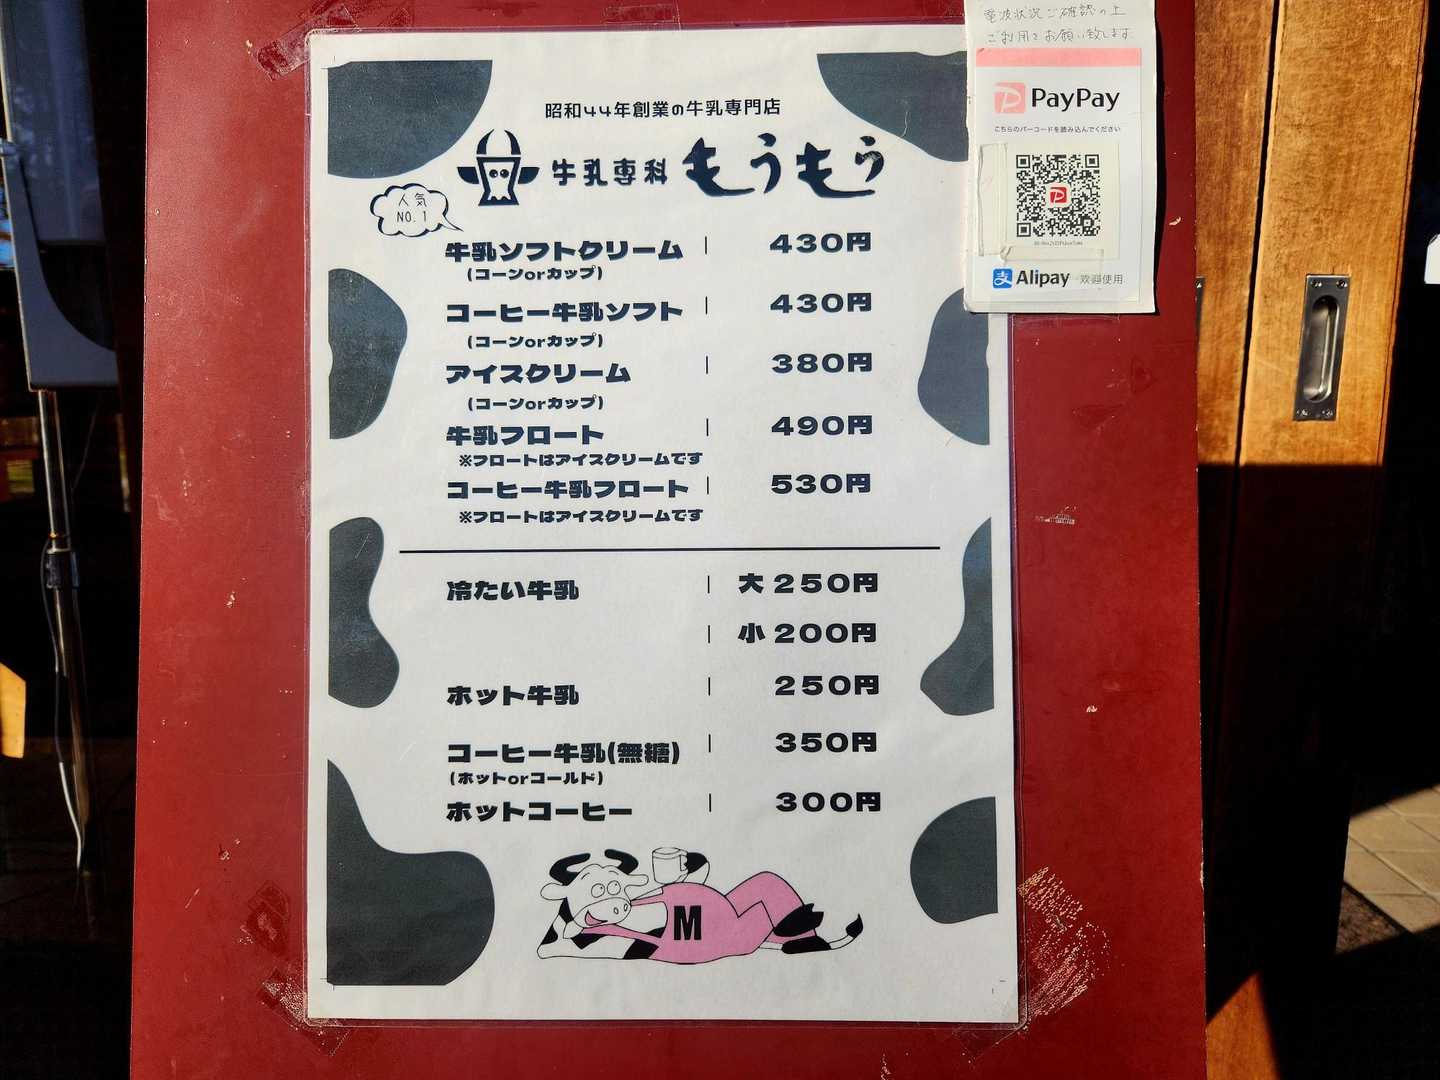 昭和44年創業の牛乳専門店
牛乳専科 もうもう
人気
NO.1
牛乳ソフトクリーム | 430円
(コーンorカップ)
コーヒー牛乳ソフト | 430円
(コーンorカップ)
アイスクリーム | 380円
(コーンorカップ)
牛乳フロート | 490円
※フロートはアイスクリームです
コーヒー牛乳フロート | 530円
※フロートはアイスクリームです
冷たい牛乳 | 大 250円
| 小 200円
ホット牛乳 | 250円
コーヒー牛乳(無糖) | 350円
(ホットorコールド)
ホットコーヒー | 300円
M
電波状況ご確認の上
ご利用をお願い致します
PayPay
こちらのバーコードを読み込んでください
Alipay 欢迎使用